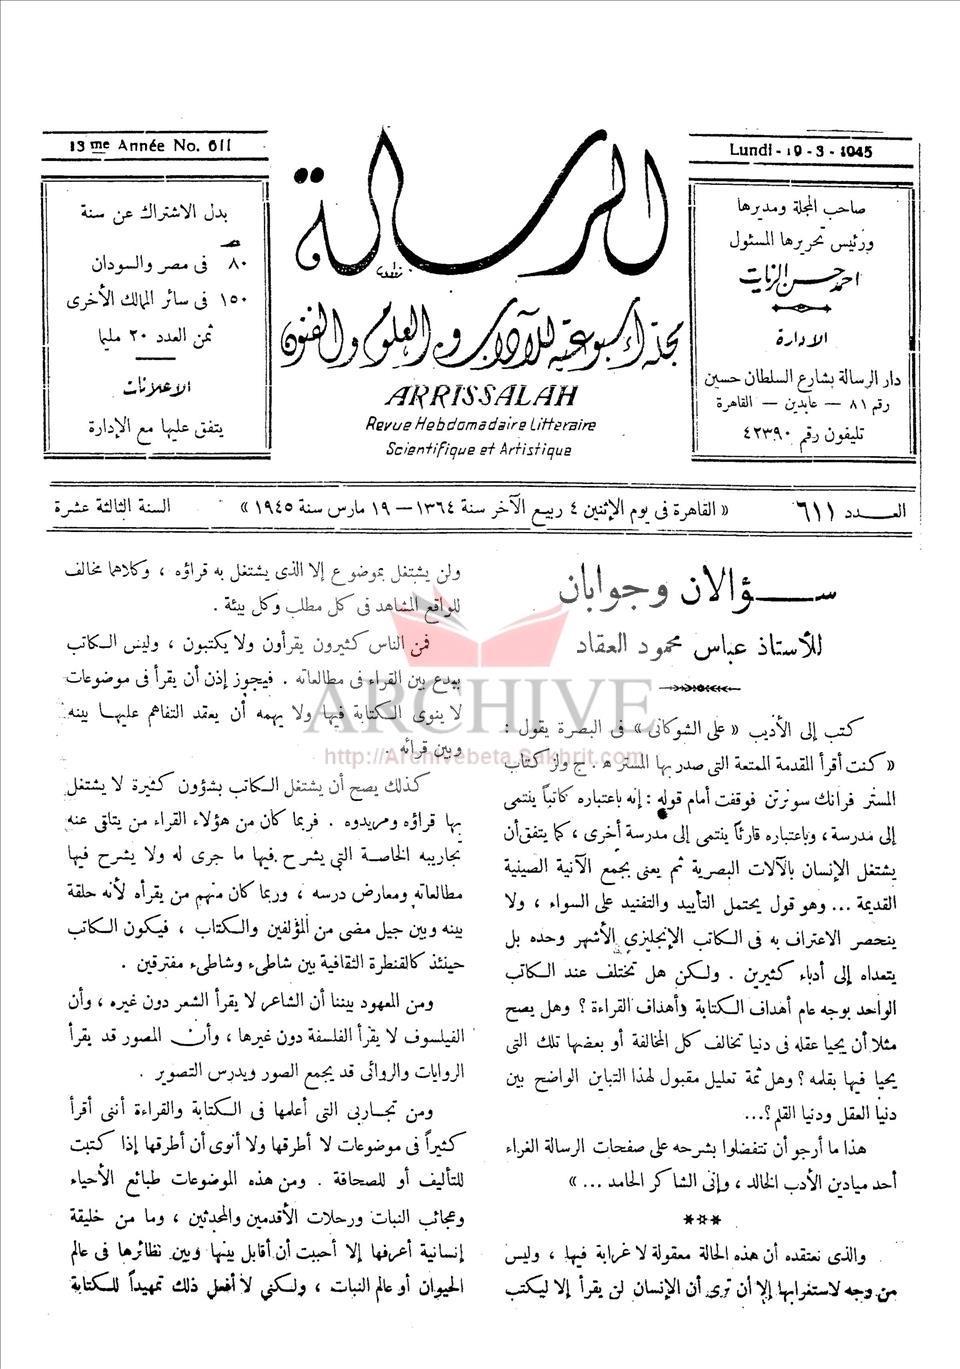 13me Année No. 611
Lundi - 19 - 3 - 1945
بدل الاشتراك عن سنة
٨٠ فى مصر والسودان
١٥٠ فى سائر الممالك الأخرى
ثمن العدد ٢٠ مليما
الاعلانات
يتفق عليها مع الإدارة
الرسالة
مجلة أسبوعية للآداب والعلوم والفنون
ARRISSALAH
Revue Hebdomadaire Litteraire
Scientifique et Artistique
صاحب المجلة ومديرها
ورئيس تحريرها المسئول
احمد حسن الزيات
الادارة
دار الرسالة بشارع السلطان حسين
رقم ٨١ — عابدين — القاهرة
تليفون رقم ٤٢٣٩٠
العـــدد ٦١١
« القاهرة فى يوم الإثنين ٤ ربيع الآخر سنة ١٣٦٤ — ١٩ مارس سنة ١٩٤٥ »
السنة الثالثة عشرة
ســـؤالان وجوابان
للأستاذ عباس محمود العقاد
كتب إلى الأديب « على الشوكانى » فى البصرة يقول :
« كنت أقرأ المقدمة الممتعة التى صدر بها المستر ه . ج ولز كتاب
المستر فرانك سونرتن فوقفت أمام قوله : إنه باعتباره كاتباً ينتمى
إلى مدرسة ، وباعتباره قارئاً ينتمى إلى مدرسة أخرى ، كما يتفق أن
يشتغل الإنسان بالآلات البصرية ثم يعنى بجمع الآنية الصينية
القديمة ... وهو قول يحتمل التأييد والتفنيد على السواء ، ولا
ينحصر الاعتراف به فى الكاتب الإنجليزى الأشهر وحده بل
يتعداه إلى أدباء كثيرين . ولكن هل تختلف عند الكاتب
الواحد بوجه عام أهداف الكتابة وأهداف القراءة ؟ وهل يصح
مثلا أن يحيا عقله فى دنيا تخالف كل المخالفة أو بعضها تلك التى
يحيا فيها بقلمه ؟ وهل ثمة تعليل مقبول لهذا التباين الواضح بين
دنيا العقل ودنيا القلم ؟...
هذا ما أرجو أن تتفضلوا بشرحه على صفحات الرسالة الغراء
أحد ميادين الأدب الخالد ، وإنى الشاكر الحامد ... »
***
والذى نعتقده أن هذه الحالة معقولة لا غرابة فيها ، وليس
من وجه لاستغرابها إلا أن ترى أن الإنسان لن يقرأ إلا ليكتب
ولن يشتغل بموضوع إلا الذى يشتغل به قراؤه ، وكلاهما مخالف
للواقع المشاهد فى كل مطلب وكل بيئة .
فمن الناس كثيرون يقرأون ولا يكتبون ، وليس الكاتب
ببدع بين القراء فى مطالعاته . فيجوز إذن أن يقرأ فى موضوعات
لا ينوى الكتابة فيها ولا يهمه أن يعقد التفاهم عليها بينه
وبين قرائه .
كذلك يصح أن يشتغل الكاتب بشؤون كثيرة لا يشتغل
بها قراؤه ومريدوه . فربما كان من هؤلاء القراء من يتلقى عنه
تجاريبه الخاصة التى يشرح فيها ما جرى له ولا يشرح فيها
مطالعاته ومعارض درسه ، وربما كان منهم من يقرأه لأنه حلقة
بينه وبين جيل مضى من المؤلفين والكتاب ، فيكون الكاتب
حينئذ كالقنطرة الثقافية بين شاطىء وشاطىء مفترقين .
ومن المعهود بيننا أن الشاعر لا يقرأ الشعر دون غيره ، وأن
الفيلسوف لا يقرأ الفلسفة دون غيرها ، وأن المصور قد يقرأ
الروايات والروائى قد يجمع الصور ويدرس التصوير .
ومن تجاربى التى أعلمها فى الكتابة والقراءة أننى أقرأ
كثيراً فى موضوعات لا أطرقها ولا أنوى أن أطرقها إذا كتبت
للتأليف أو للصحافة . ومن هذه الموضوعات طبائع الأحياء
وعجائب النبات ورحلات الأقدمين والمحدثين ، وما من خليقة
إنسانية أعرفها إلا أحببت أن أقابل بينها وبين نظائرها فى عالم
الحيوان أو عالم النبات ، ولكنى لا أفعل ذلك تمهيداً للكتابة
ARCHIVE
http://Archivebeta.Sakhrit.com